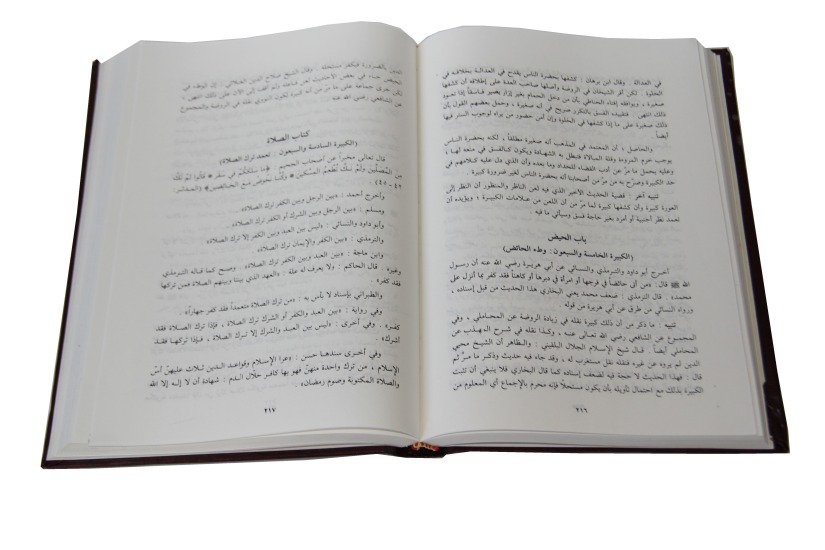 في العدالة . وقال ابن برهان : كشفها بحضرة الناس يقدح في العدالة بخلافه في
الخلوة . لكن أقر الشيخان في الروضة وأصلها صاحب العدة على إطلاقه أن كشفها
صغيرة ، ويوافقه إفتاء الحناطي بأن من دخل الحمام بغير إزار يصير فاسقاً إذا تعود
ذلك انتهى . فتقييده الفسق بالتكرر صريح في أنه صغيرة ، وحمل بعضهم القول بأن
ذلك صغيرة على ما إذا كشفها في الخلوة وإن أمن حضور من يراه لوجوب الستر فيها
أيضاً .
والحاصل ، أن المعتمد في المذهب أنه صغيرة مطلقاً ، لكنه بحضرة الناس
يوجب خرم المروءة وقلة المبالاة فتبطل به الشهادة ويكون كالفسق في منعه لها ،
وعليه يحمل ما مر عن أدب القضاء للحداد وما بعده وأن الذي دل عليه كلامهم في
حد الكبيرة وصرّح به من مرّ من أصحابنا أنه بحضرة الناس لغير ضرورة كبيرة .
تنبيه آخر : قضية الحديث الأخير الذي فيه لعن الناظر والمنظور أن النظر إلى
العورة كبيرة وأن كشفها كبيرة لما مرّ من أن اللعن من علامات الكبيرة ؛ ويؤيده أن
تعمد نظر أجنبية أو أمرد بغير حاجة فسق وسيأتي ما فيه
باب الحيض
(الكبيرة الخامسة والسبعون : وطء الحائض)
أخرج أبو داود والترمذي والنسائي عن أبي هريرة رضي الله عنه أن رسول
الله ﷺ قال : «من أتى حائضاً في فرجها أو امرأة في دبرها أو كاهناً فقد كفر بما أنزل على
محمد» . قال الترمذي : ضعف محمد يعني البخاري هذا الحديث من قبل إسناده ،
ورواه النسائي من طرق عن أبي هريرة من قوله .
تنبيه : ما ذكر من أن ذلك كبيرة نقله في زيادة الروضة عن المحاملي ، وفي
المجموع عن الشافعي رضي الله تعالى عنه ، وكذا نقله في شرح المهذب عن
المحاملي أيضاً . قال شيخ الإسلام الجلال البلقيني : والظاهر أن الشيخ محيي
الدين لم يروه عن غيره فنقله نقل مستغرب له ، وقد جاء فيه حديث وذكر ما مرّ ثم
قال : فهذا الحديث لا حجة فيه لضعف إسناده كما قال البخاري فلا ينبغي أن تثبت
الكبيرة بذلك مع احتمال تأويله بأن يكون مستحلاً فإنه محرم بالإجماع أي المعلوم من
٢١٦
الدين بالضرورة فيكفر مستحله . وقال الشيخ صلاح الدين العلائي : إن الوطء في
الحيض جاء في بعض الأحاديث لعن فاعله ولم أقف إلى الآن على ذلك انتهى .
لكن جرى جماعة على ما مرّ من أنه كبيرة لكون النووي نقله في الروضة والمجموع
عن الشافعي رضي الله عنه :
كتاب الصلاة
(الكبيرة السادسة والسبعون : تعمد ترك الصلاة)
قال تعالى مخبراً عن أصحاب الجحيم : ﴿ما سلككم في سقر * قالوا لم نك
من المصلين * ولم نك نطعم المسكين * وكنا نخوض مع الخائضين﴾ (المدثر:
٤٢ - ٤٥) .
وأخرج أحمد : «بين الرجل وبين الكفر ترك الصلاة» .
ومسلم : «بين الرجل وبين الشرك أو الكفر ترك الصلاة» .
وأبو داود والنسائي : «ليس بين العبد وبين الكفر إلا ترك الصلاة» .
والترمذي : «بين الكفر والإيمان ترك الصلاة» .
وابن ماجة : «بين العبد وبين الكفر ترك الصلاة» . وصح كما قاله الترمذي
وغيره . قال الحاكم : ولا يعرف له علة : «العهد الذي بيننا وبينهم الصلاة فمن تركها
فقد كفر» .
والطبراني بإسناد لا بأس به : «من ترك الصلاة متعمداً فقد كفر جهاراً» .
وفي رواية : «بين العبد والكفر أو الشرك ترك الصلاة ، فإذا ترك الصلاة فقد
كفر» . وفي أخرى : «ليس بين العبد والشرك إلا ترك الصلاة ، فإذا تركها فقد
أشرك» .
وفي أخرى سندها حسن : «عرا الإسلام وقواعد الدين ثلاث عليهن أسّ
الإسلام ، من ترك واحدة منهنّ فهو بها كافر حلال الدم : شهادة أن لا إله إلا الله
والصلاة المكتوبة وصوم رمضان» .
٢١٧